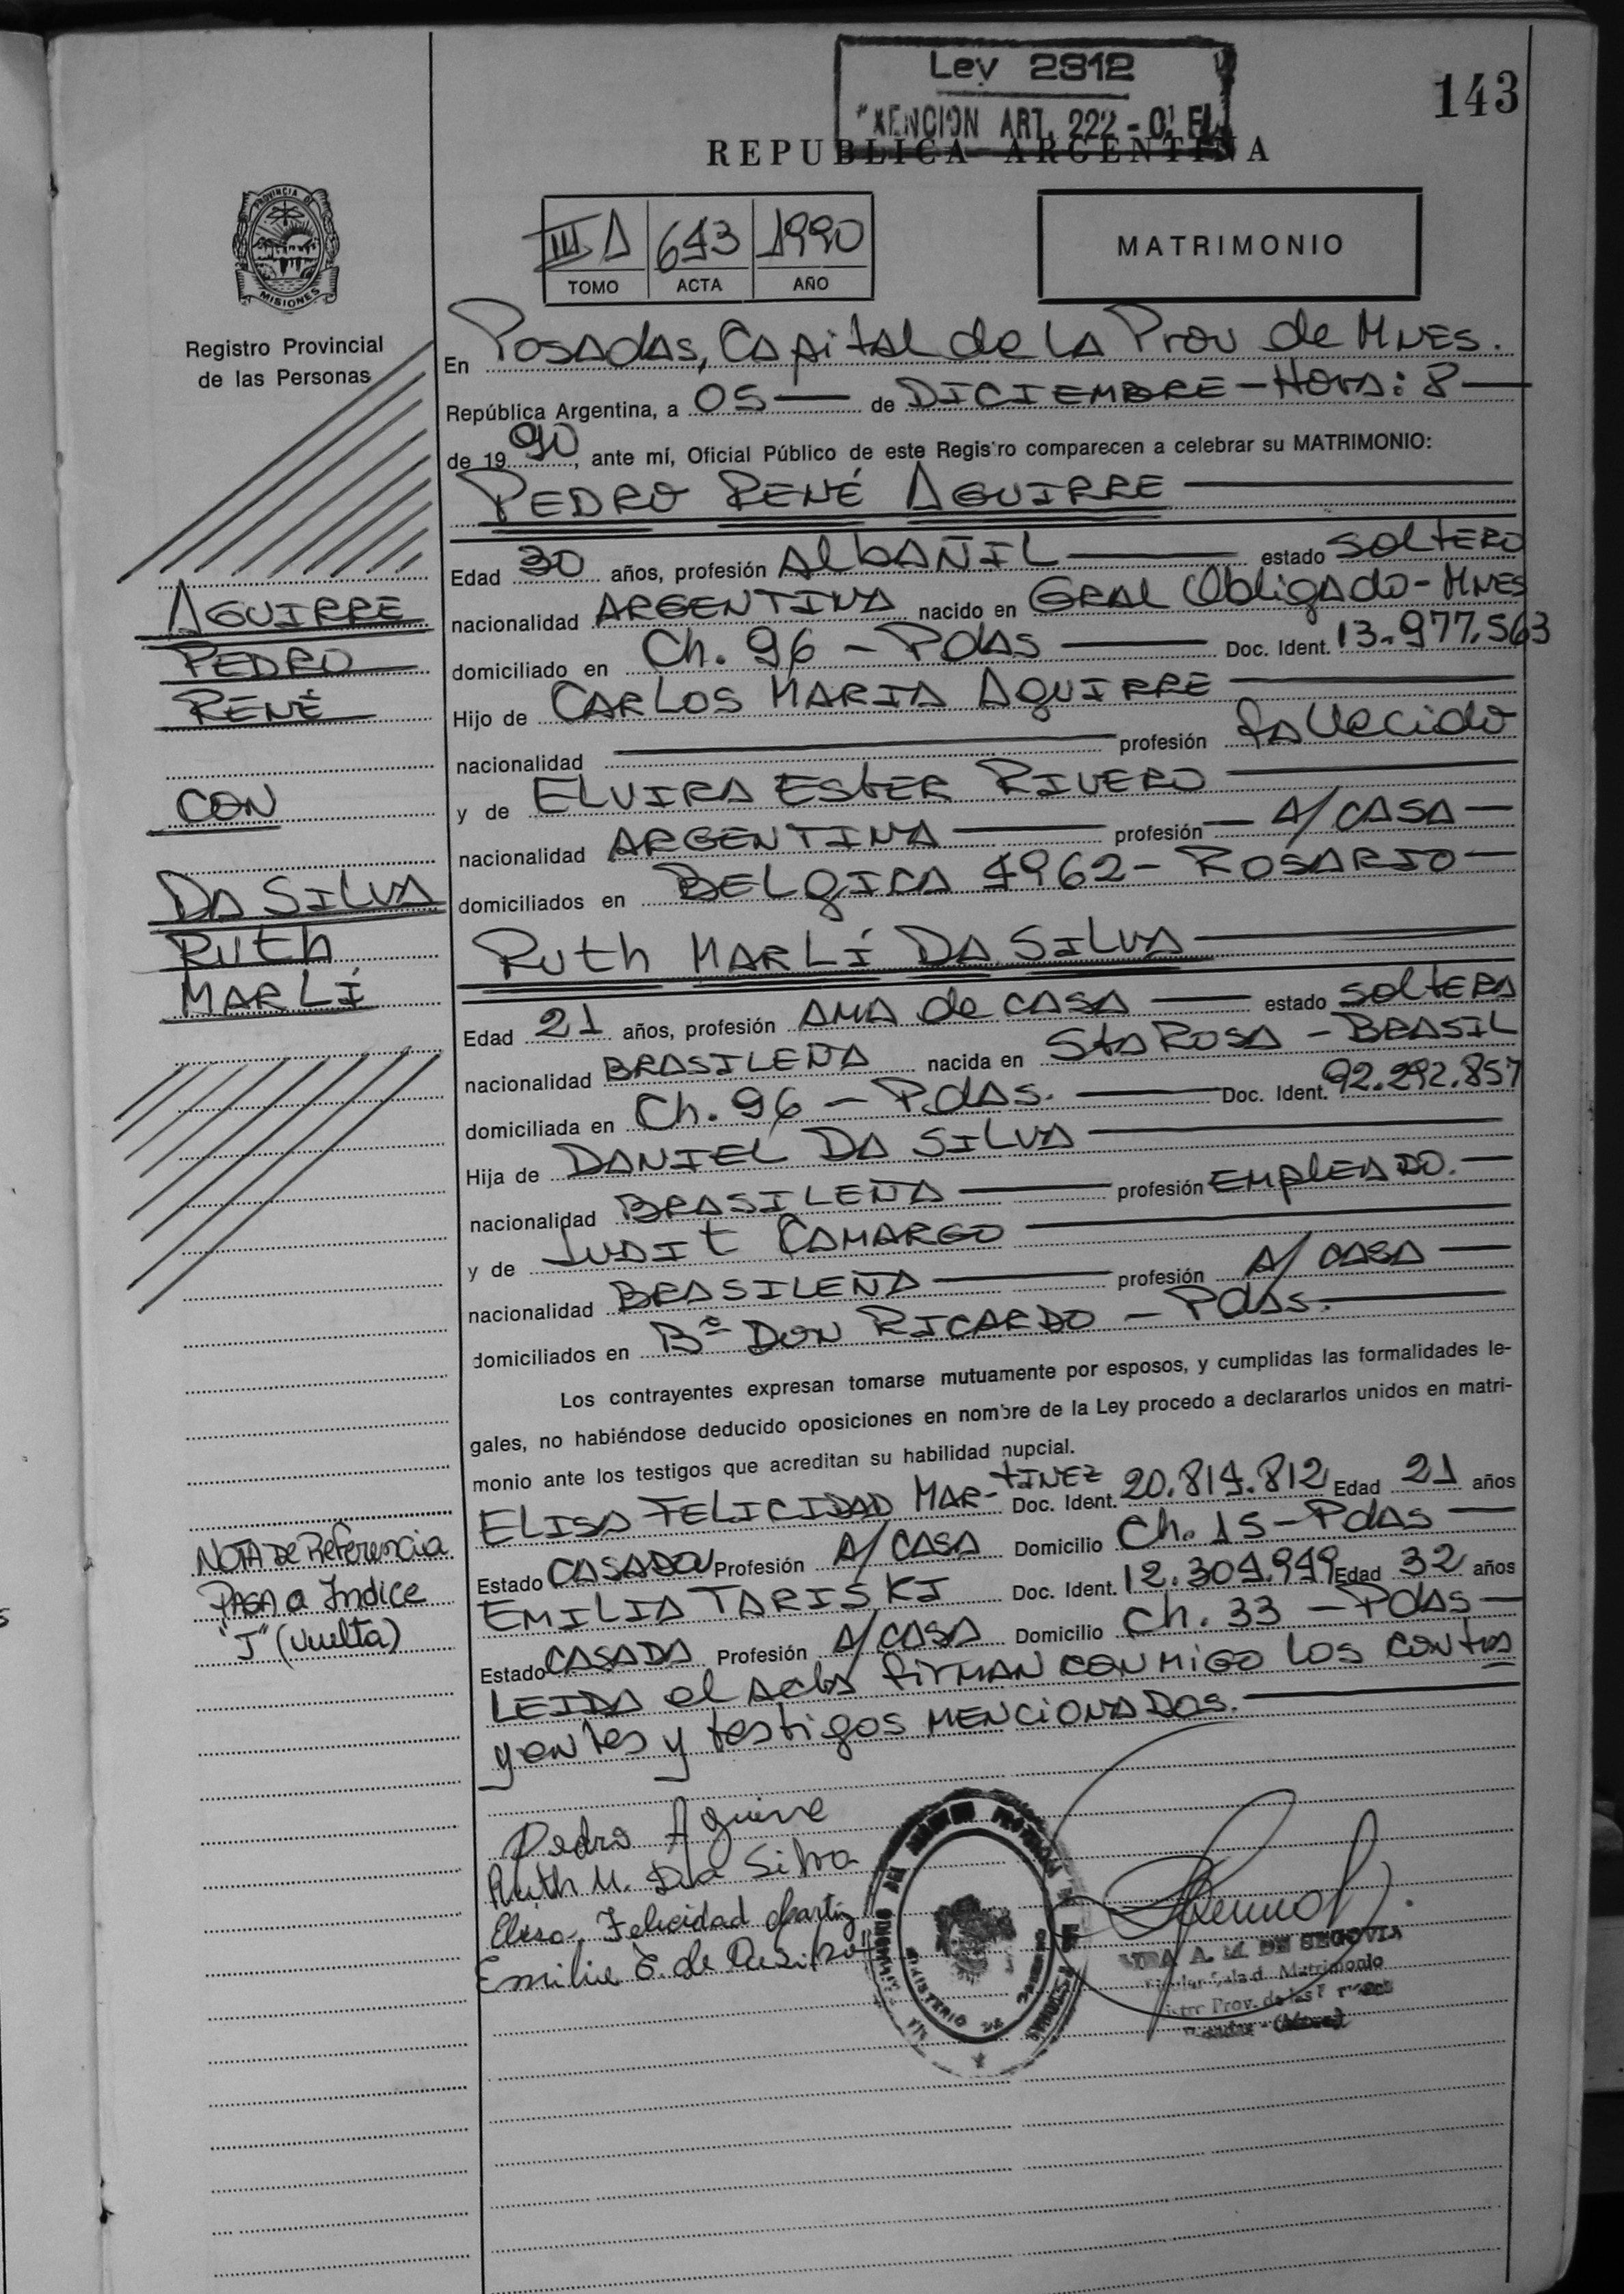 143
Ley 2912
XENCION ART. 222 - 0'
REPUBLICA ARGENTINA
PROVINCIA DE
MISIONES
Registro Provincial
de las Personas
III A 643 1990
TOMO ACTA AÑO
MATRIMONIO
En Posadas, Capital de la Prov de Mnes.
República Argentina, a 05 — de DICIEMBRE — Hora: 8 —
de 1990, ante mí, Oficial Público de este Registro comparecen a celebrar su MATRIMONIO:
PEDRO RENÉ AGUIRRE
Edad 30 años, profesión AlbAÑIL estado SoltERO
nacionalidad ARGENTINA nacido en GRAL Obligado - Mnes
domiciliado en Ch. 96 - Pdas Doc. Ident. 13.977.563
Hijo de CARLOS MARIA AGUIRRE
nacionalidad — profesión fallecido
y de ELVIRA ESTER RIVERO
nacionalidad ARGENTINA profesión — A/ CASA —
domiciliados en BELGICA 4962 - ROSARIO —
RUth MARLÍ DA SILVA
Edad 21 años, profesión AMA de CASA estado SoltERA
nacionalidad BRASILEÑA nacida en Sta ROSA - BRASIL
domiciliada en Ch. 96 - Pdas. Doc. Ident. 92.292.857
Hija de DANIEL DA SILVA
nacionalidad BRASILEÑA profesión EMPLEADO. —
y de JUDIt CAMARGO
nacionalidad BRASILEÑA profesión A/ CASA —
domiciliados en Bº DON RICARDO - Pdas.
Los contrayentes expresan tomarse mutuamente por esposos, y cumplidas las formalidades le-
gales, no habiéndose deducido oposiciones en nombre de la Ley procedo a declararlos unidos en matri-
monio ante los testigos que acreditan su habilidad nupcial.
ELISA FELICIDAD MAR-tINEZ Doc. Ident. 20.814.812 Edad 21 años
Estado CASADA Profesión A/ CASA Domicilio Ch. 15 - Pdas —
EMILIA TARISKI Doc. Ident. 12.304.949 Edad 32 años
Estado CASADA Profesión A/ CASA Domicilio Ch. 33 - Pdas —
LEIDA el acta firman conmigo los contra
yentes y testigos mencionados.
AGUIRRE
PEDRO
RENÉ
CON
DA SILVA
RUth
MARLÍ
NOTA de Referencia
PASA a Indice
"J" (vuelta)
Pedro Aguirre
Ruth M. Da Silva
Elisa Felicidad Martinez
Emilia T. de
MINISTERIO DE
A. M. DE SEGOVIA
Matrimonio
Prov. de las